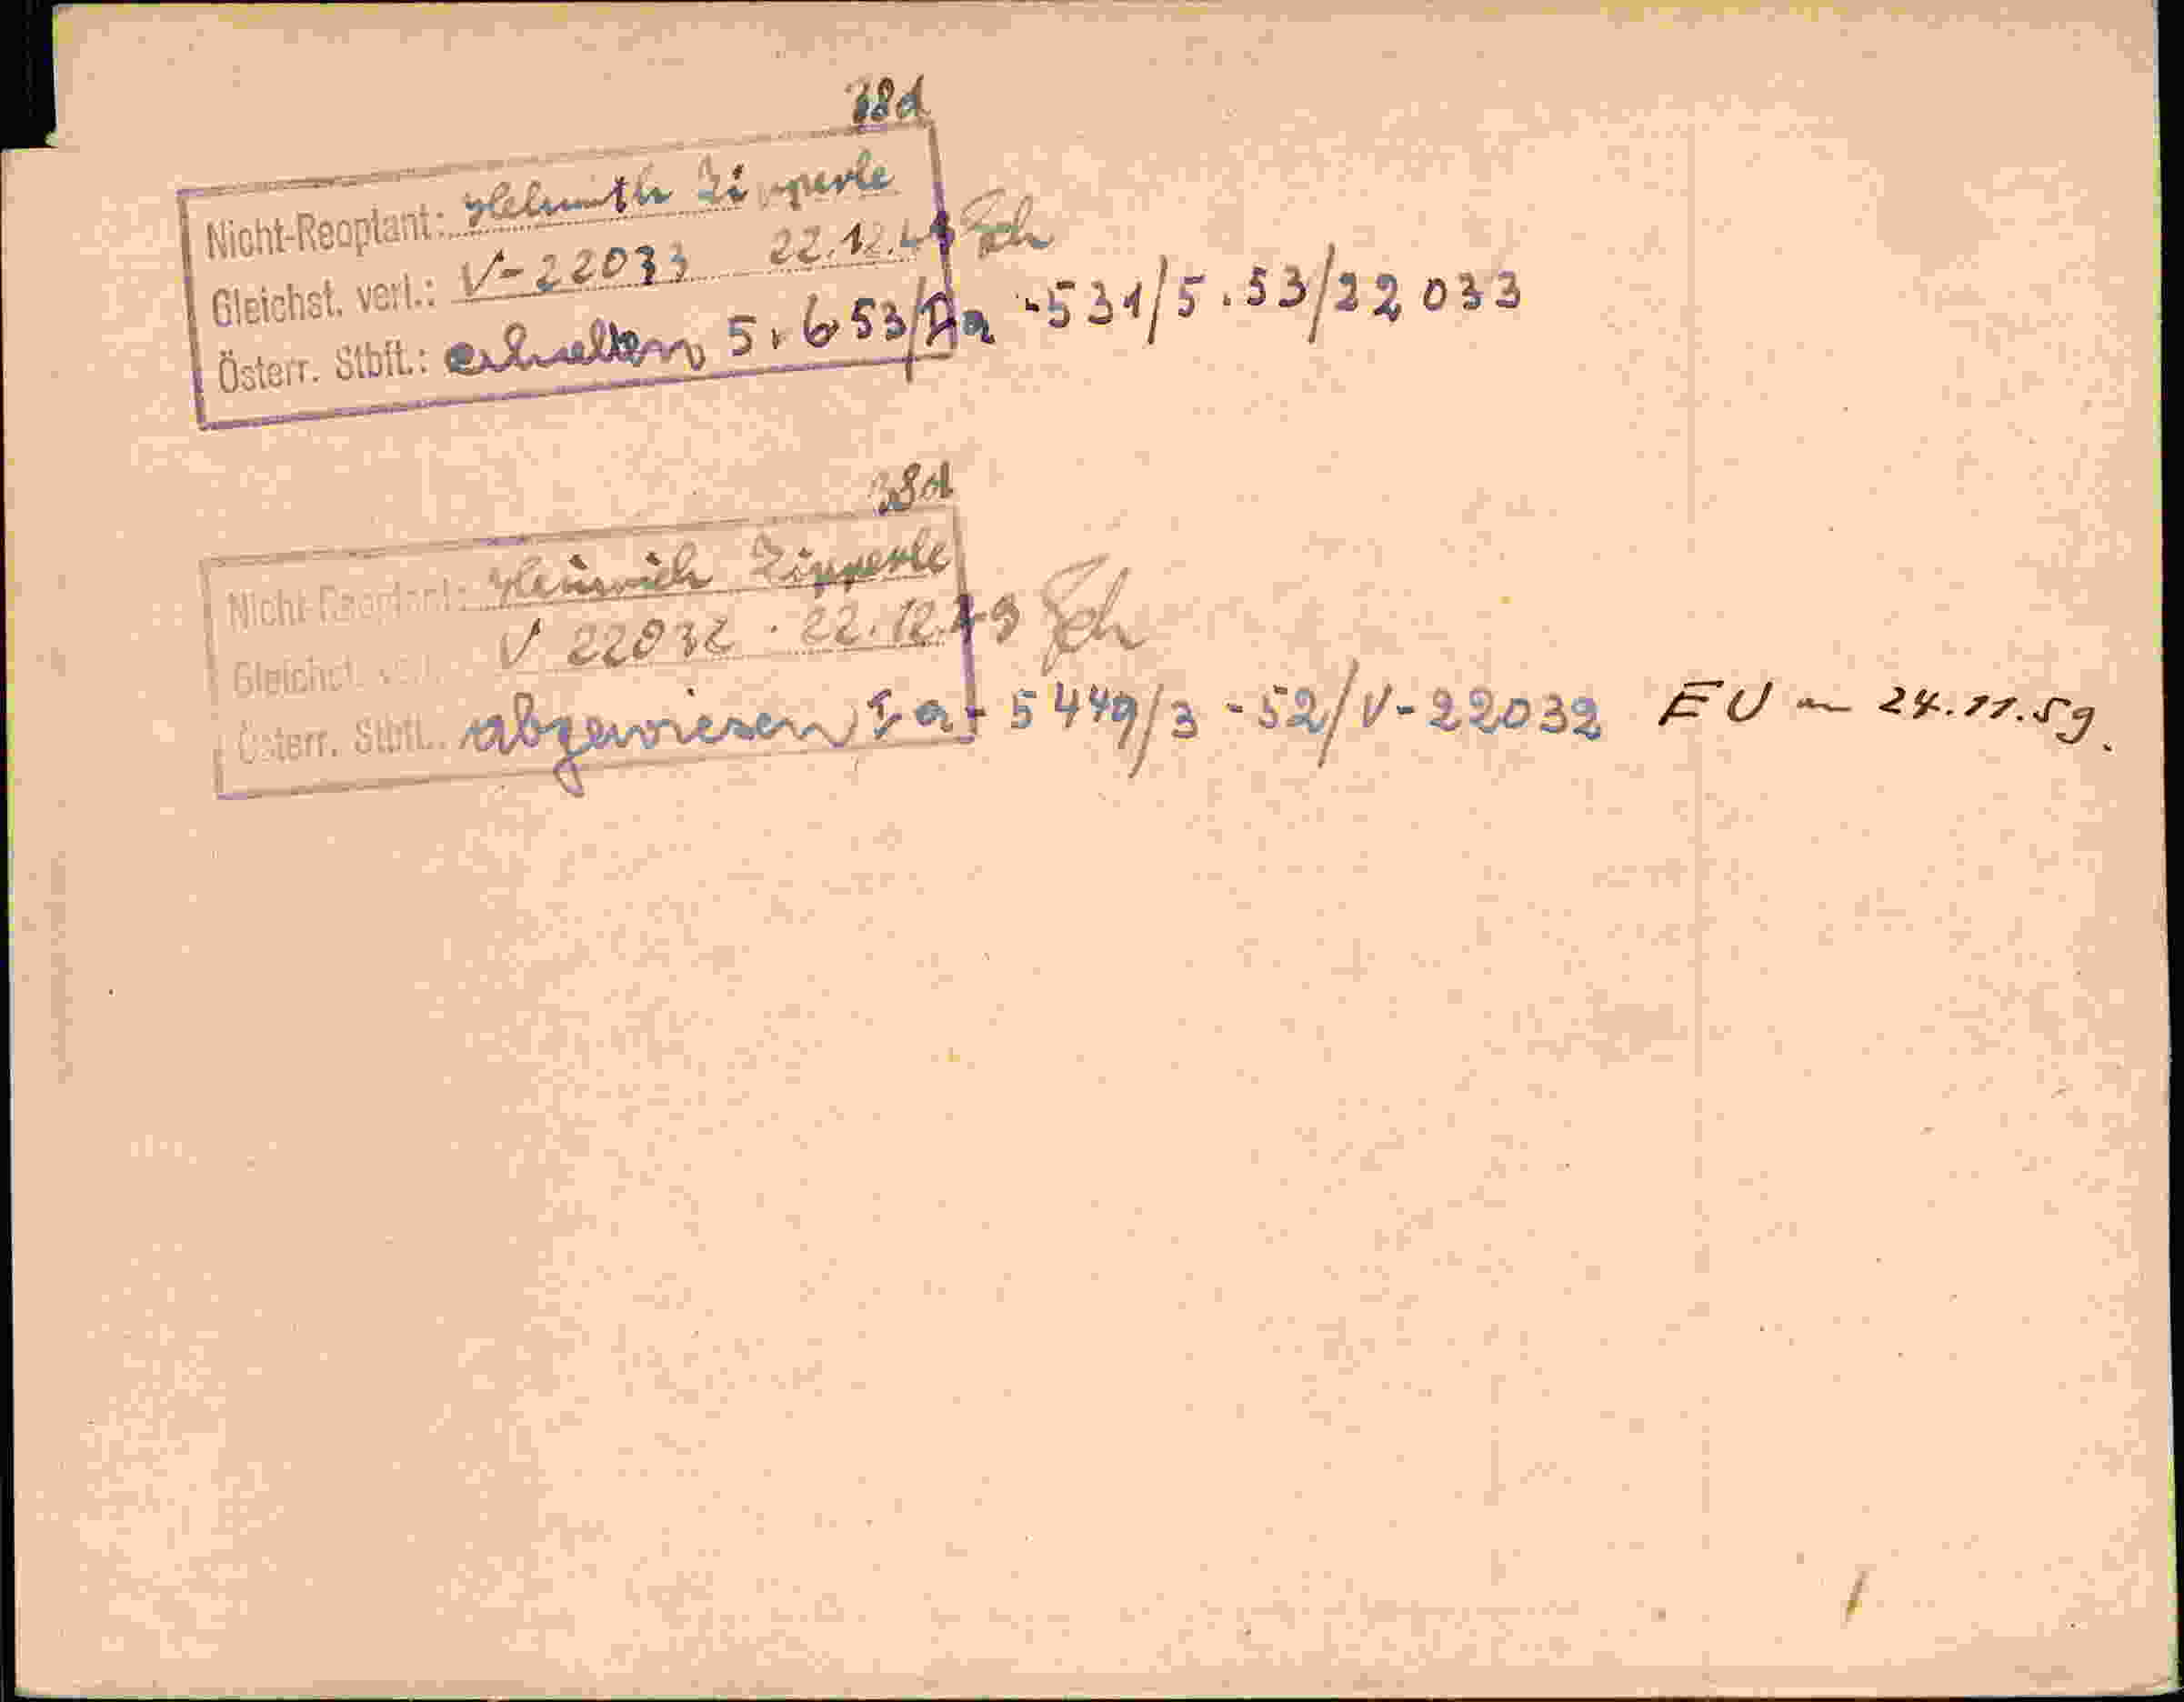 38d
Nicht-Reoptant: Helmuth Zipperle
Gleichst. verl.: V-22033 22.12.49 Sch
Österr. Stbft.: erhalten 5.6 53/Ia -531/5.53/22 033
38d
Nicht-Reoptant: Heinrich Zipperle
Gleichst. verl.: V 22032 . 22.12.49 Sch
Österr. Stbft.: abgewiesen Ia- 5449/3 -52/V-22032 EU 24.11.59.